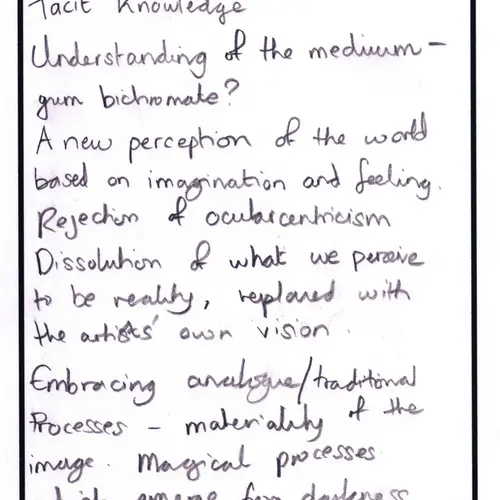 Tacit Knowledge
Understanding of the medium -
gum bichromate?
A new perception of the world
based on imagination and feeling.
Rejection of ocularcentricism
Dissolution of what we perceive
to be reality, replaced with
the artists' own vision.
Embracing analogue/traditional
Processes - materiality of the
image. Magical processes
which emerge from darkness